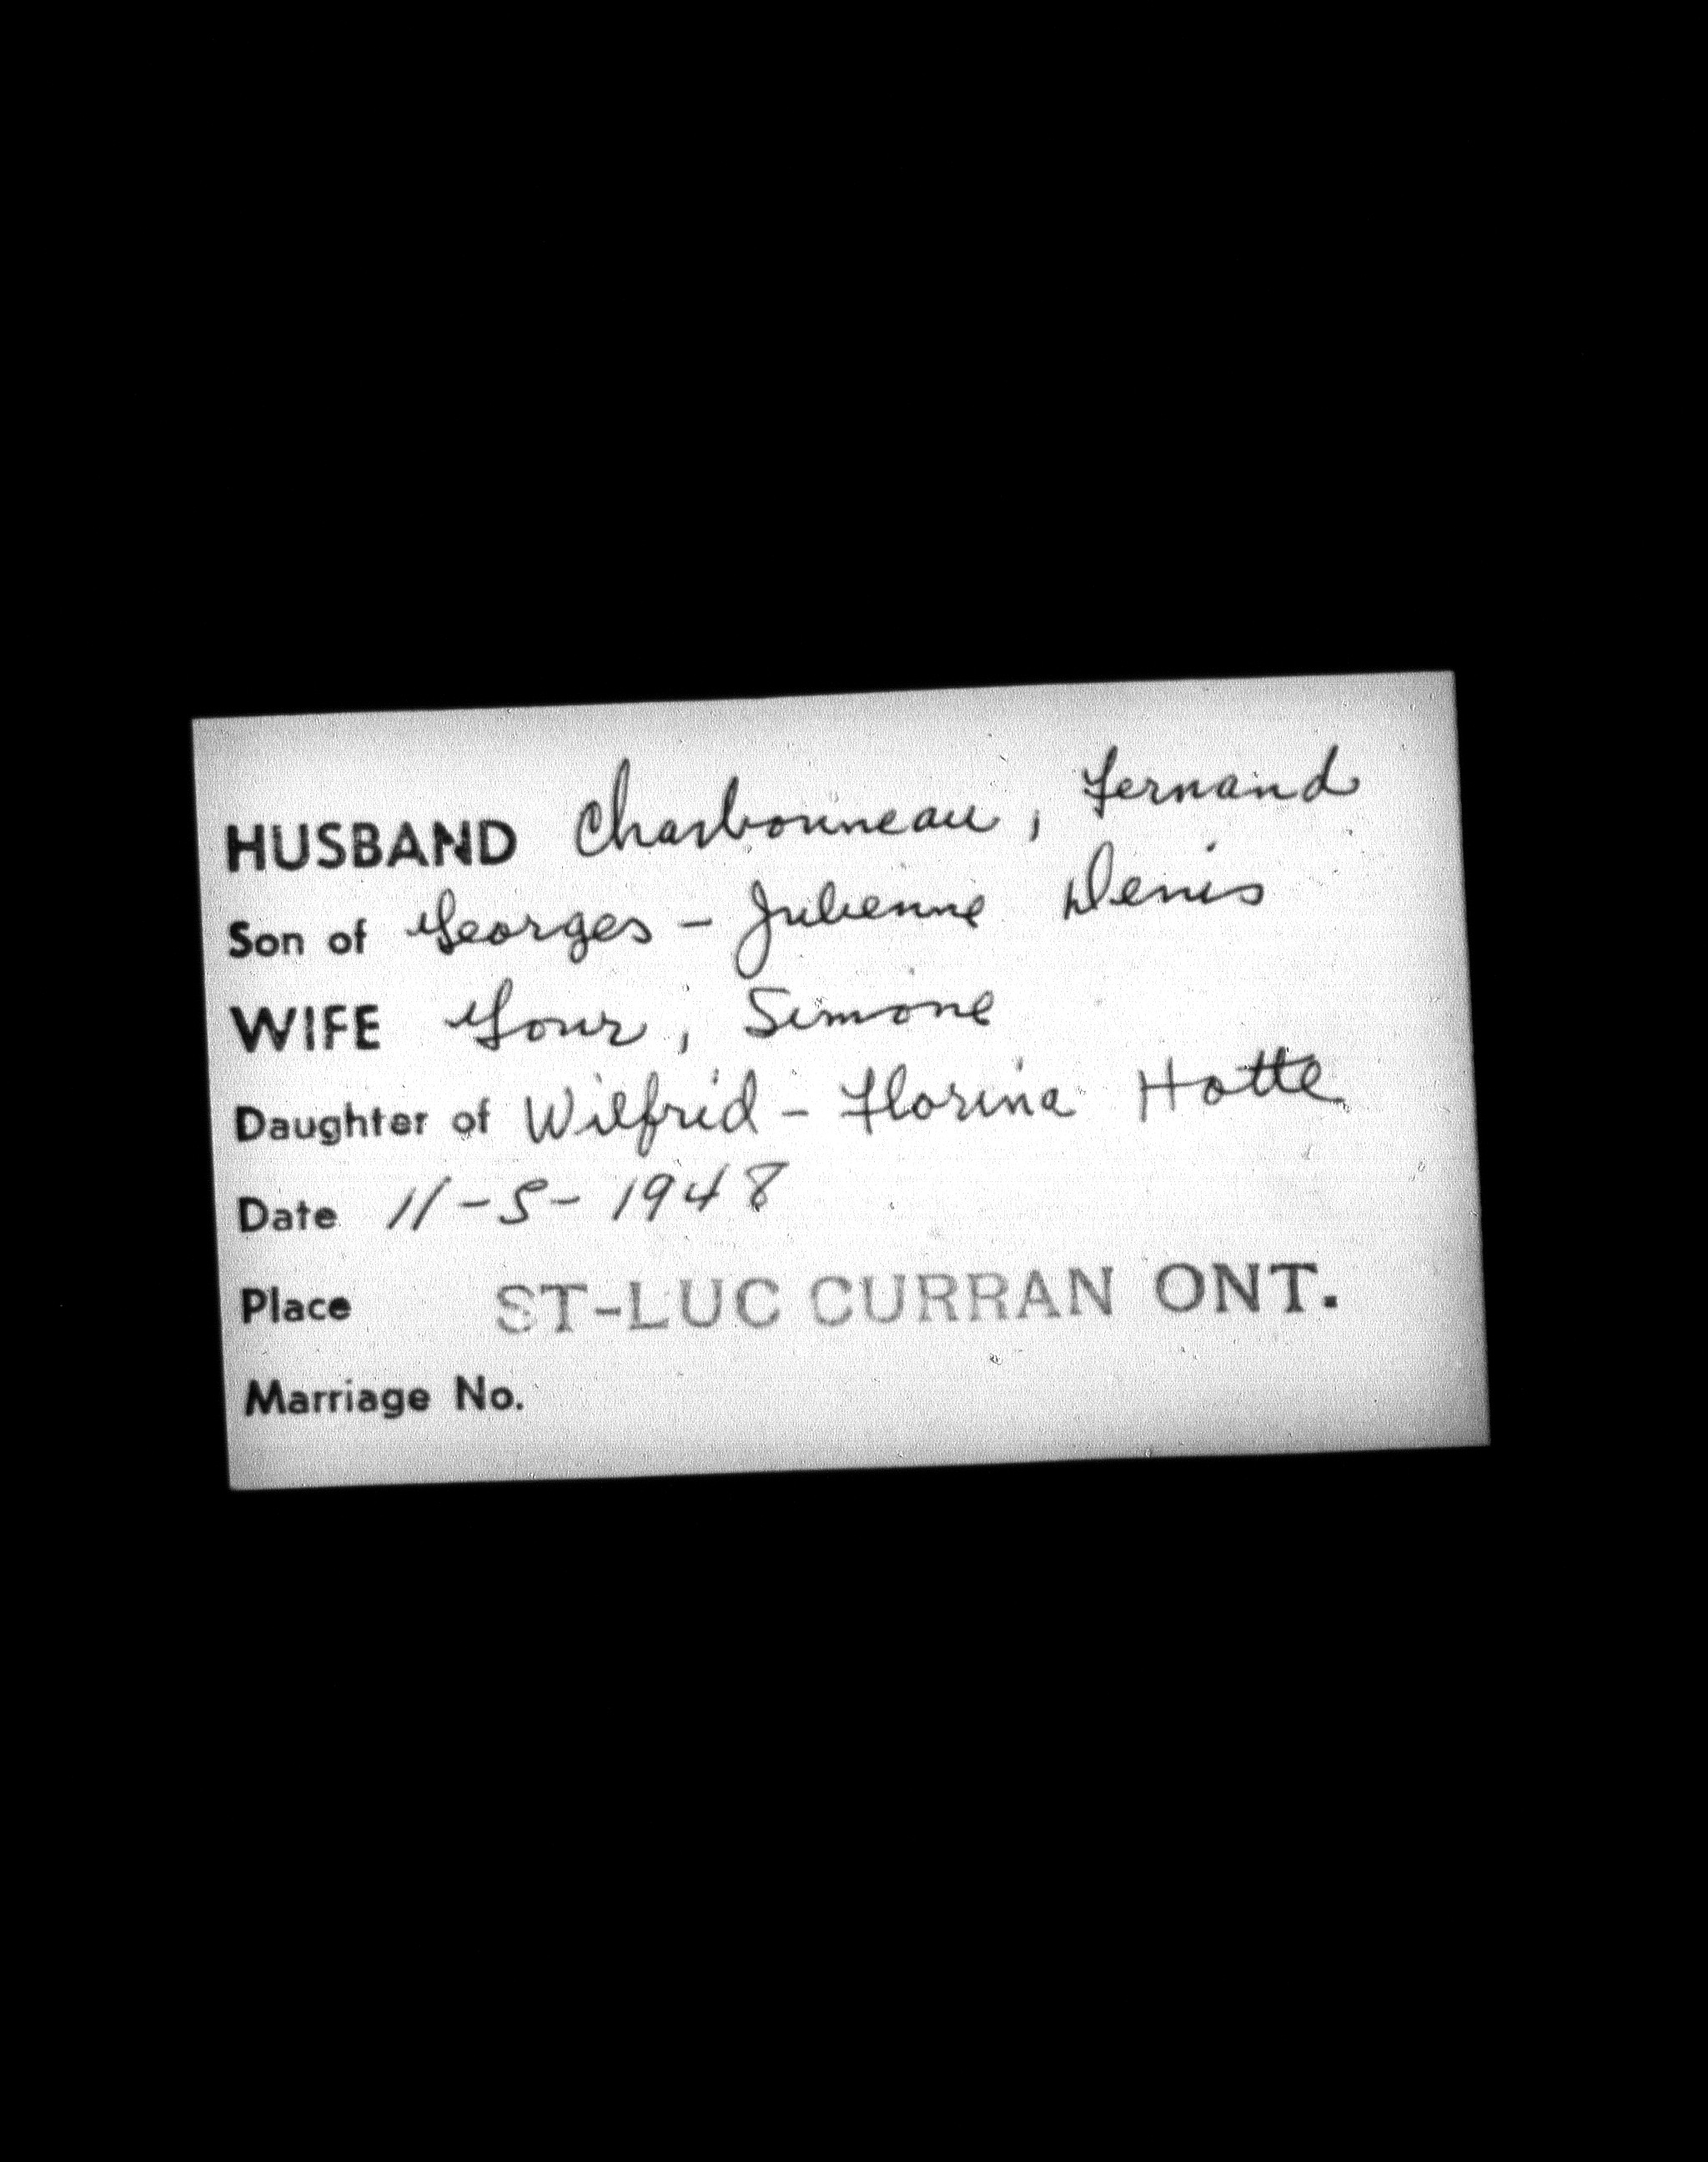 HUSBAND Charbonneau, Fernand
Son of Georges - Julienne Denis
WIFE Gour, Simone
Daughter of Wilfrid - Florina Hotte
Date 11-5-1948
Place ST-LUC CURRAN ONT.
Marriage No.